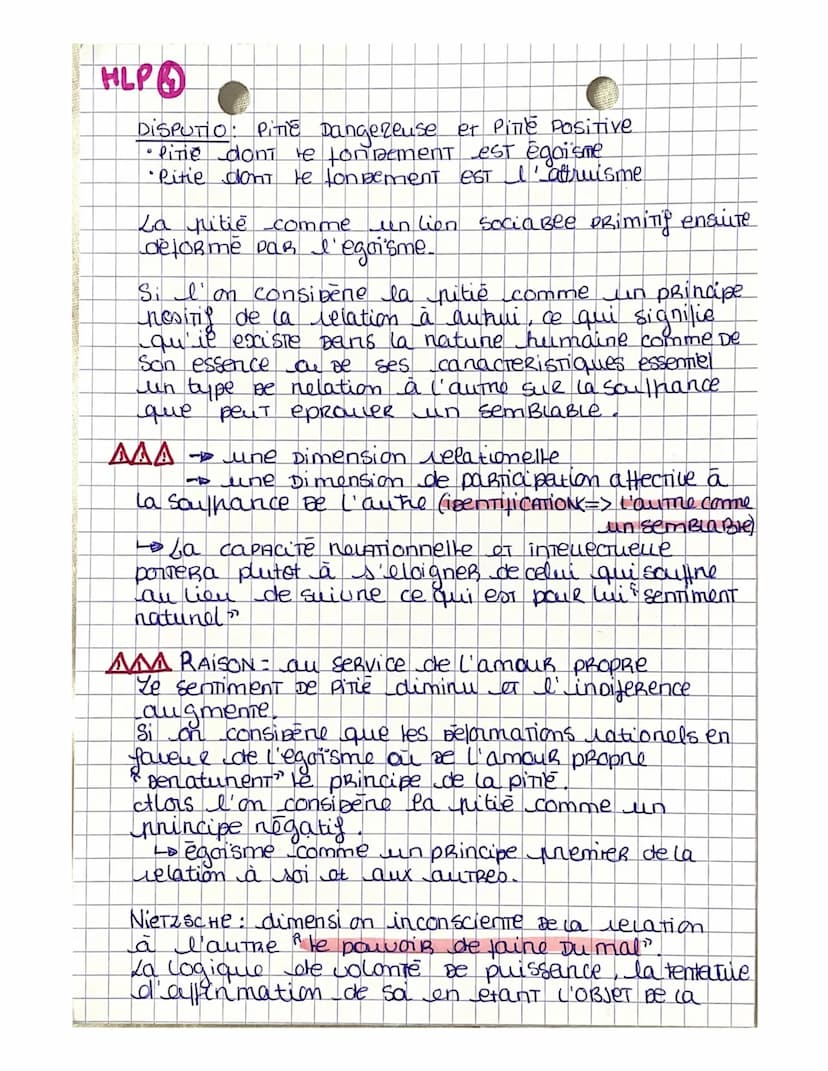 HLP ④
Disputio : Pitié Dangereuse et Pitié Positive
• Pitié dont le fondement est égoïsme
• Pitié dont le fondement est l'altruisme
La pitié comme un lien sociable primitif ensuite
déformé par l'egoïsme.
Si l'on considère la pitié comme un principe
positif de la relation à autrui, ce qui signifie
qu'il existe dans la nature humaine comme de
son essence ou de ses caracteristiques essentiel
un type de relation à l'autre sur la souffrance
que peut eprouver un semblable.
⚠⚠⚠ → une dimension relationelle
→ une dimension de participation affective à
la souffrance de l'autre (identification => l'autre comme
un semblable)
↳ La capacité rationnelle et intellectuelle
portera plutot à s'eloigner de celui qui souffre
au lieu de suivre ce qui est pour lui "sentiment
naturel"
⚠⚠⚠ Raison = au service de l'amour propre
Le sentiment de pitié diminu et l'indiference
augmente.
Si on considère que les déformations rationels en
faveur de l'egoïsme ou de l'amour propre
"denaturent" le principe de la pitié.
Alors l'on considère la pitié comme un
principe négatif.
↳ égoïsme comme un principe premier de la
relation à soi et aux autres.
Nietzsche : dimension inconsciente de la relation
à l'autre "le pouvoir de faire du mal".
La logique de volonté de puissance, la tentative
d'affirmation de soi en etant l'objet de la